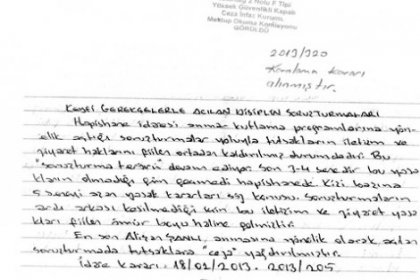 2 Nolu F Tipi
Yüksek Güvenlikli Kapalı
Ceza İnfaz Kurumu
Mektup Okuma Komisyonu
GÖRÜLDÜ
2013/320
Karalama kararı
alınmıştır.
KEYFİ GEREKÇELERLE AÇILAN DİSİPLİN SORUŞTURMALARI
Hapishane idaresi anma, kutlama programlarına yön-
elik açtığı soruşturmalar yoluyla tutsakların iletişim ve
ziyaret haklarını fiilen ortadan kaldırılmış durumdadır. Bu
"soruşturma terörü" devam ediyor. Son 3-4 senedir bu yasa
kların olmadığı gün geçmedi hapishanede. Kişi başına
5 seneyi aşan yasak kararları söz konusu. Soruşturmaların
ardı arkası kesilmediği için bu iletişim ve ziyaret yasa
kları fiilen ömür boyu haline gelmiştir.
En son Alişan ŞANLI anmasına yönelik olarak açılan
soruşturmada tutsaklara "ceza" yağdırılmıştır.
İdare kararı: 18/02/2013 - 2013/205